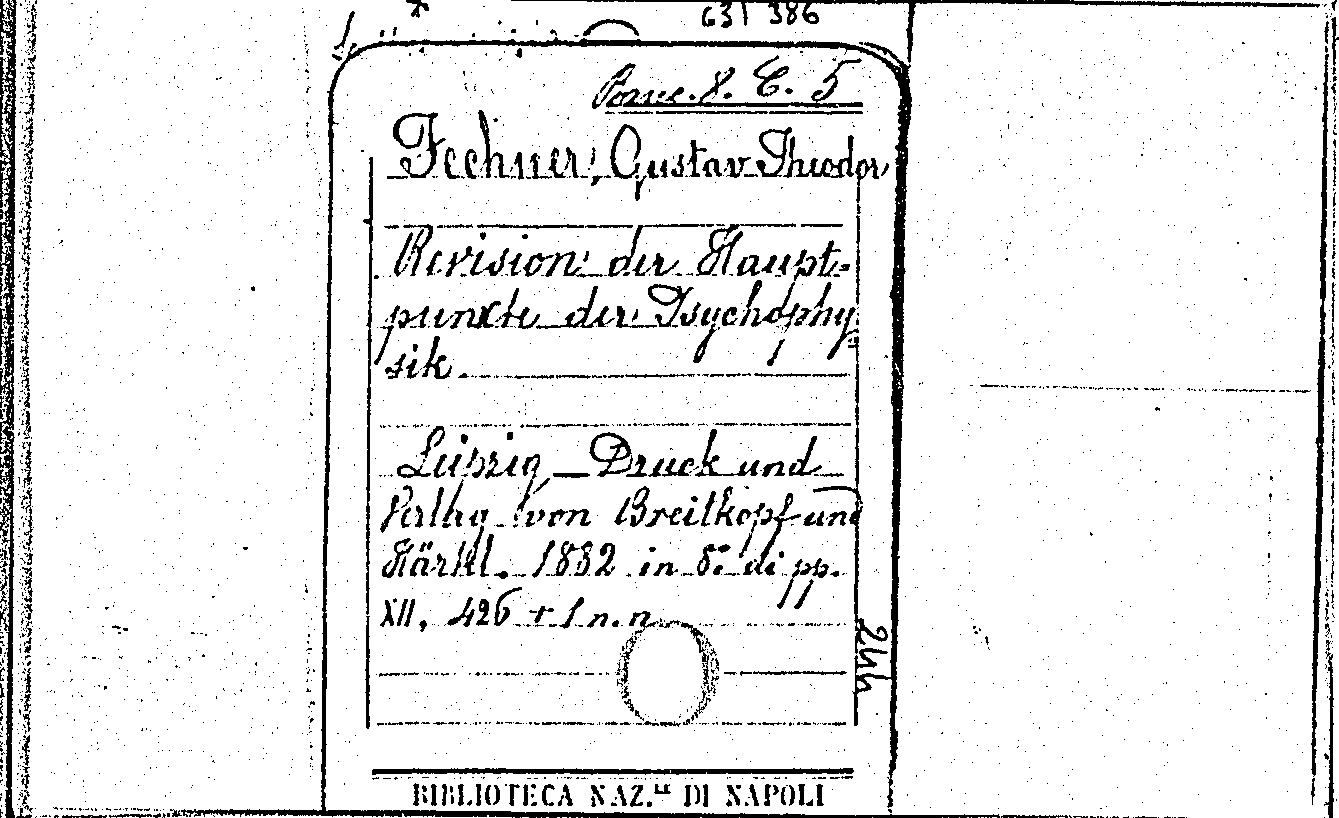 631 386
8. C. 5
Fechner, Gustav Theodor
Revision der Haupt-
punkte der Psychophy
sik.
Leipzig, Druck und
Verlag von Breitkopf und
Härtel. 1882 in 8.° di pp.
XII, 426 + 1 n. n.
244
BIBLIOTECA NAZ.LE DI NAPOLI